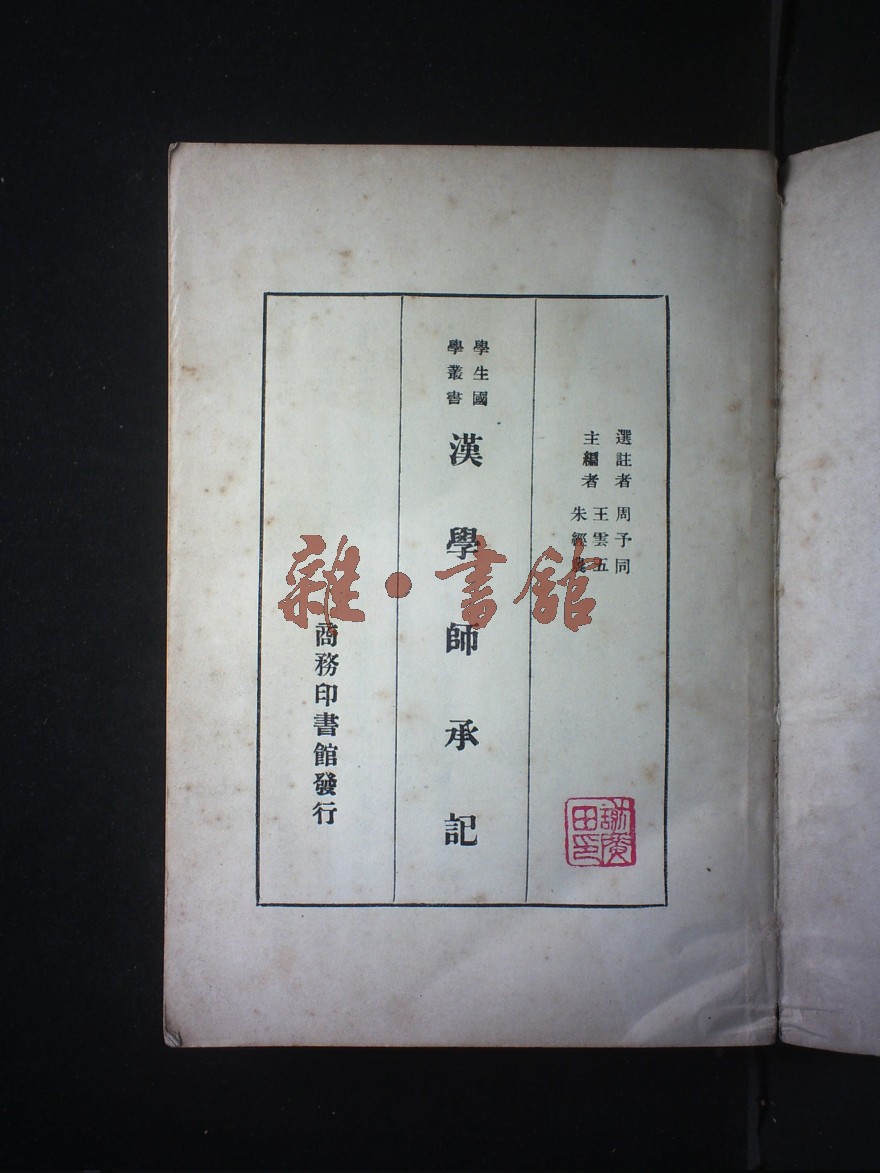 選註者 周予同
主編者 王雲五
朱經農
學生國
學叢書
漢學師承記
商務印書館發行
雜·書館
謝廣
田印